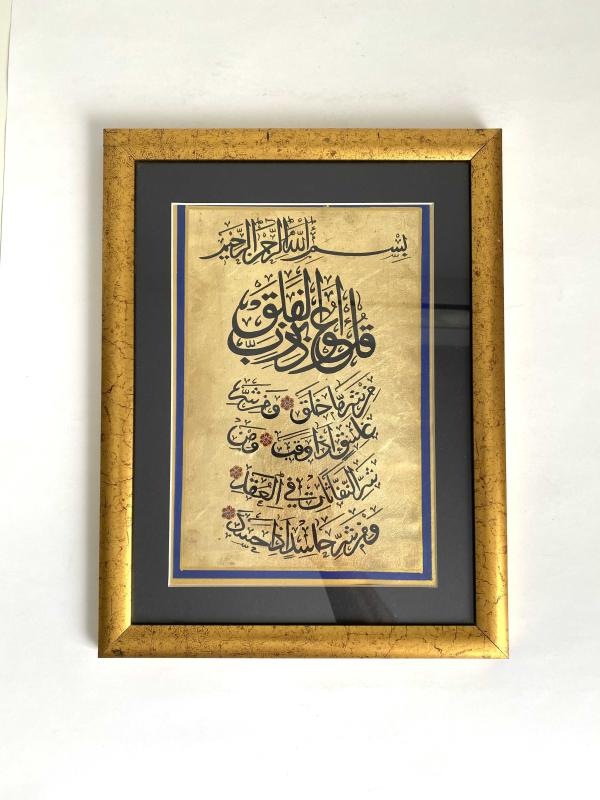 بِسْمِ اللَّهِ الرَّحْمٰنِ الرَّحِيمِ
قُلْ أَعُوذُ بِرَبِّ الْفَلَقِ
مِنْ شَرِّ مَا خَلَقَ وَمِنْ شَرِّ
غَاسِقٍ إِذَا وَقَبَ وَمِنْ
شَرِّ النَّفَّاثَاتِ فِي الْعُقَدِ
وَمِنْ شَرِّ حَاسِدٍ إِذَا حَسَدَ